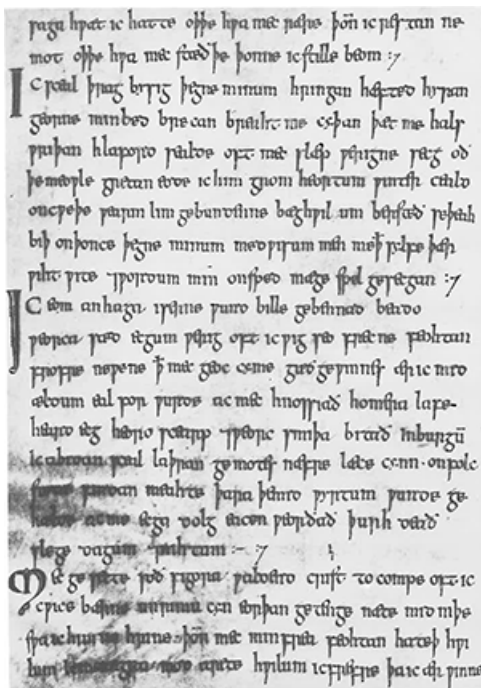 saga hƿæt ic hatte oþþe hƿa mec rære þoñ ic restan ne
mot oþþe hƿa mec stæð þe þonne ic stille beom :7
Ic sceal þrag bysig þegne minum hringan hæfted hyran
georne min bed brecan breahtme cyþan þæt me hals
ƿriþan hlaford sealde oft mec slæp ƿerigne secg oð
þe meoƿle gretan eode ic him grom heortum ƿinter ceald
oncƿeþe ƿearm lim gebundenne bæg hƿilum bersteð seþeah
biþ onþonce þegne minum medƿisum men me ꝥ sylfe þær
ƿiht ƿite ⁊ ƿordum min onsped mæge spel gesecgan :7
Ic eom anhaga iserne ƿund bille gebennad beado
ƿeorca sæd ecgum ƿerig oft ic ƿig seo frecne feohtan
frofre neƿene ꝥ mec geoc cyme guð geƿinnes ær ic mid
ældum eal for ƿurde ac mec hnossiað homera lafe
heard ecg heoro scearp ⁊ƿeorc smiþa bitað inburgū
ic abidan sceal laþran gemotes næfre læce cynn onfolc
stede findan meahte þara þemid ƿyrtum ƿunde ge
hælde ac me ecga dolg eacen ƿeorðað þurh deað
slege dagum ⁊ nihtum :– :7
Mec gesette soð sigora ƿaldend crist to compe oft ic
cƿice bærne unrimu cyn eorþan getenge næte mid niþe
sƿa ic him no hrine þoñ mec min frea feohtan hateþ hƿi
lum ic monigra mod arete hƿilum ic frefre þa ic ær ƿinne